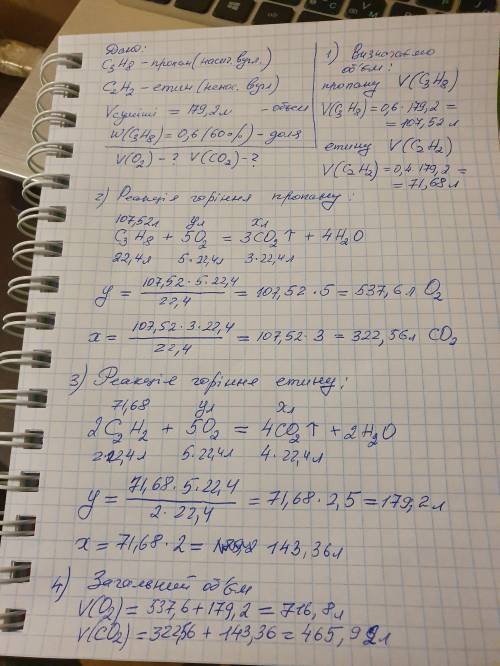 Дано:
C3H8 - пропан (насич. вугл.)
C2H2 - етин (ненас. вугл)
Vсуміші = 179,2л - объем
W(C3H8) = 0,6 (60%) - доля
V(O2) - ? V(CO2) - ?
1) Визначаємо
об'єм:
пропану V(C3H8)
V(C3H8) = 0,6 · 179,2 =
= 107,52 л
етину V(C2H2)
V(C2H2) = 0,4 · 179,2 =
= 71,68 л
2) Реакція горіння пропану:
107,52л yл xл
C3H8 + 5O2 = 3CO2↑ + 4H2O
22,4л 5·22,4л 3·22,4л
y = 107,52 · 5 · 22,4 / 22,4 = 107,52 · 5 = 537,6 л O2
x = 107,52 · 3 · 22,4 / 22,4 = 107,52 · 3 = 322,56л CO2
3) Реакція горіння етину:
71,68 yл xл
2C2H2 + 5O2 = 4CO2↑ + 2H2O
2·22,4л 5·22,4л 4·22,4л
y = 71,68 · 5 · 22,4 / 2 · 22,4 = 71,68 · 2,5 = 179,2л
x = 71,68 · 2 = 143,36л
4) Загальний об'єм
V(O2) = 537,6 + 179,2 = 716,8л
V(CO2) = 322,56 + 143,36 = 465,92л